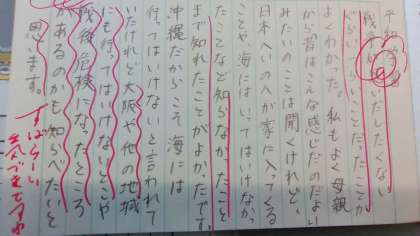 平和学習
戦争が思いだしたくない
くらいつらいことだったことが
よくわかった。私もよく母親
から昔はこんな感じだのだよい
みたいのことは聞くけれど、
日本へいのへが家に入ってくる
ことや海にはいってはいけなかっ
たことなど知らなかったこと
まで知れたことがよかったです。
沖縄だからこそ海には
行ってはいけないと言われて
いたけれど大阪や他の地域
にも行ってはいけないとこや
戦後危険になったところ
があるのかも知らべたいと
思います。
すばらしい